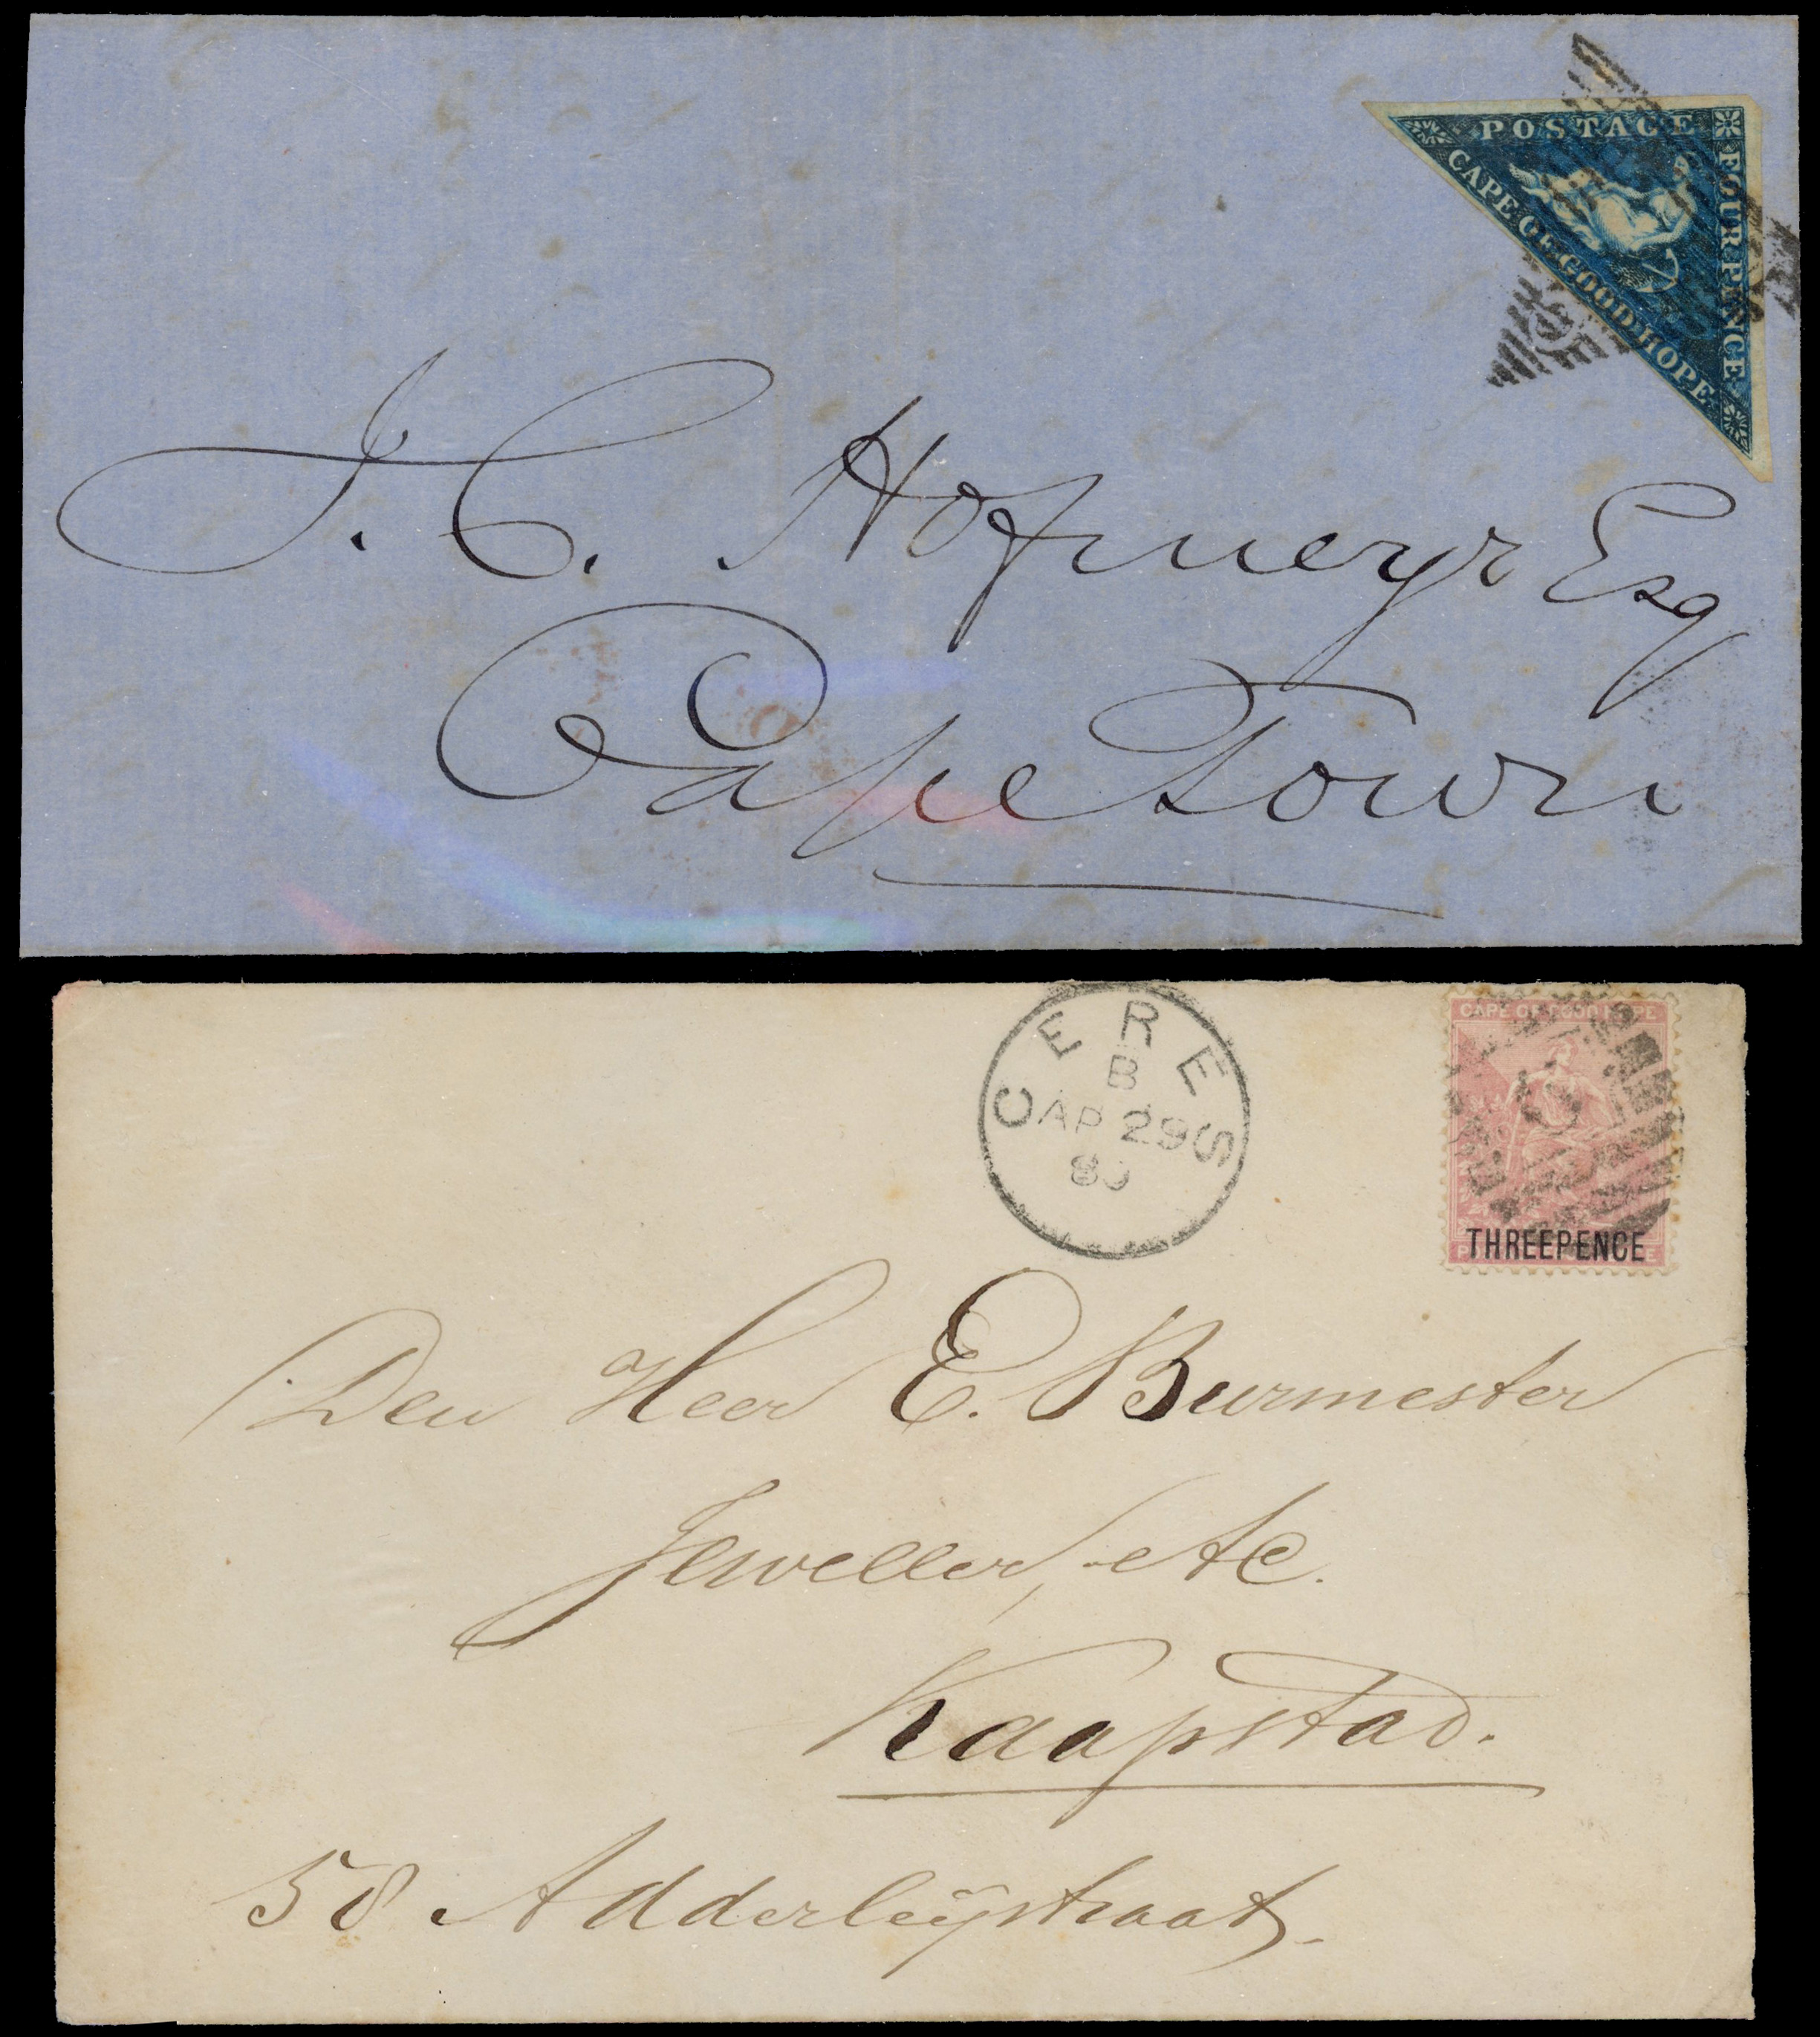 POSTAGE
FOUR PENCE
CAPE OF GOOD HOPE
J. C. Hofmeyr Esq
Cape Town
CERES
B
AP 29
80
CAPE OF GOOD HOPE
THREEPENCE
Den Heer E. Burmester
Jeweller, etc.
Kaapstad.
58 Adderleÿstraat.